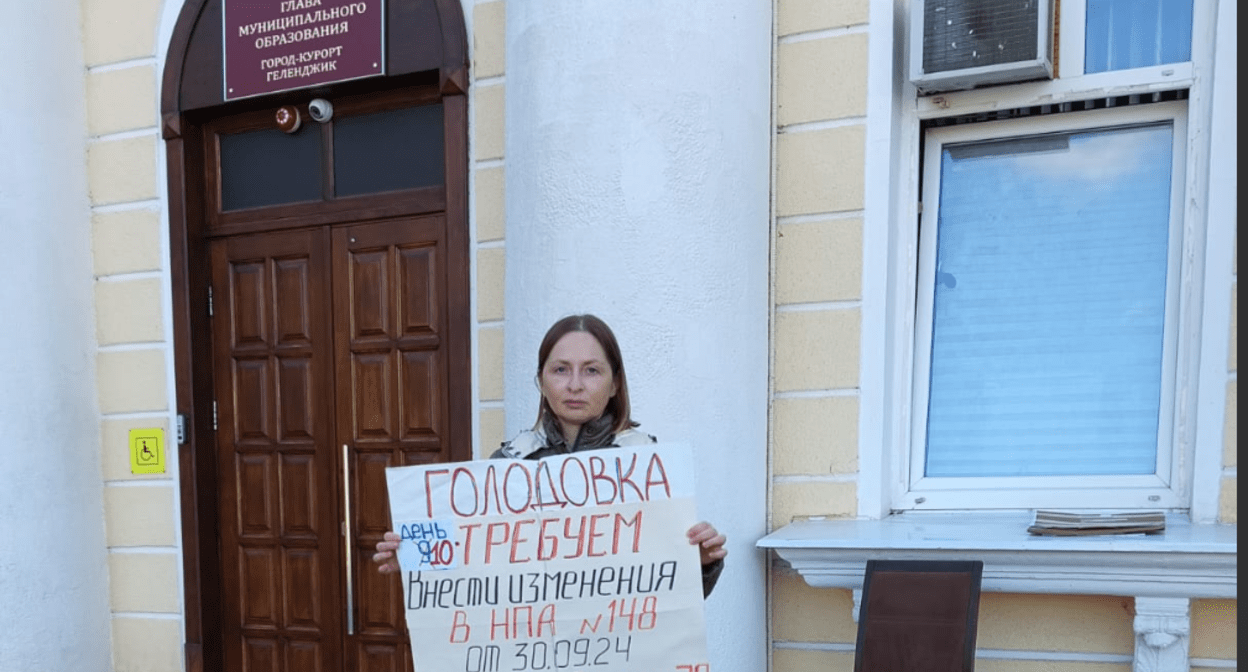 ГЛАВА
МУНИЦИПАЛЬНОГО
ОБРАЗОВАНИЯ
ГОРОД-КУРОРТ
ГЕЛЕНДЖИК
ГОЛОДОВКА
ДЕНЬ
10
ТРЕБУЕМ
Внести изменения
В НПА №148
от 30.09.24